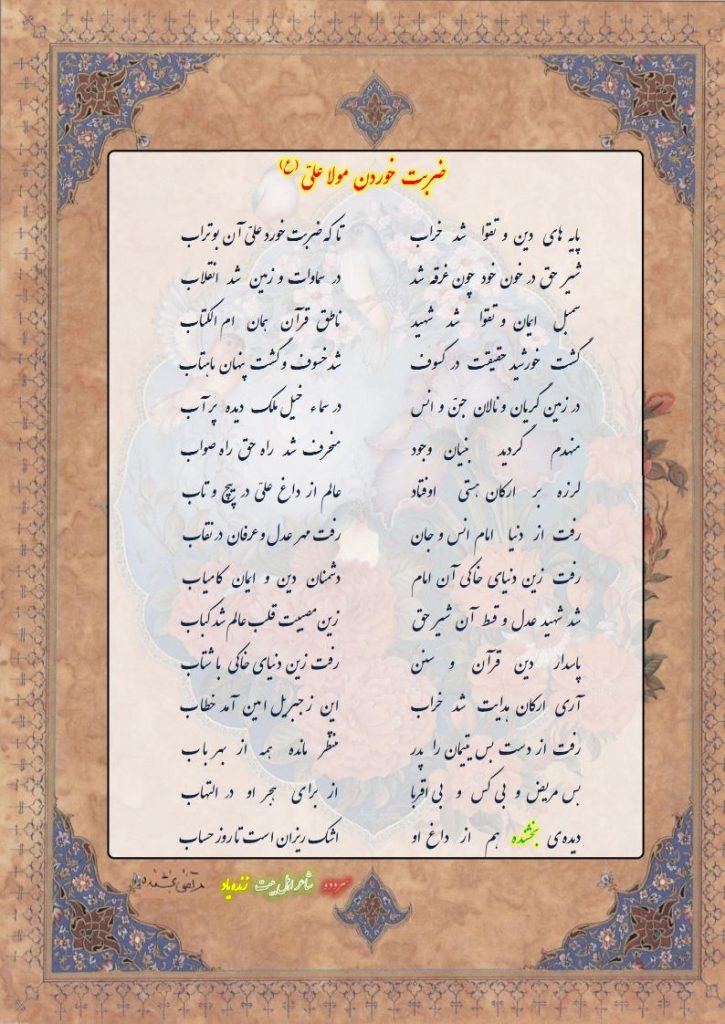 ضربت خوردن مولا علیّ (ع)
پایه های دین و تقوا شد خراب تا که ضربت خورد علیّ آن بوتراب
شیر حق در خون خود چون غرقه شد در سماوات و زمین شد انقلاب
سمبل ایمان و تقوا شد شهید ناطق قرآن همان ام الکتاب
گشت خورشید حقیقت در کسوف شد خسوف و گشت پنهان ماهتاب
در زمین گریان و نالان جنّ و انس در سماء خیل ملک دیده پر آب
منهدم گردید بنیان وجود منحرف شد راه حق راه صواب
لرزه بر ارکان هستی اوفتاد عالم از داغ علیّ در پیچ و تاب
رفت از دنیا امام انس و جان رفت مهر عدل و عرفان در نقاب
رفت زین دنیای خاکی آن امام دشمنان دین و ایمان کامیاب
شد شهید عدل و قسط آن شیر حق زین مصیبت قلب عالم شد کباب
پاسدار دین قرآن و سنن رفت زین دنیای خاکی با شتاب
آری ارکان هدایت شد خراب این ز جبریل امین آمد خطاب
رفت از دست بس یتیمان را پدر منتظر مانده همه از بهر باب
بس مریض و بی کس و بی اقربا از برای هجر او در التهاب
دیده‌ی بخشنده هم از داغ او اشک ریزان است تا روز حساب
سروده شاعر اهل بیت زنده یاد